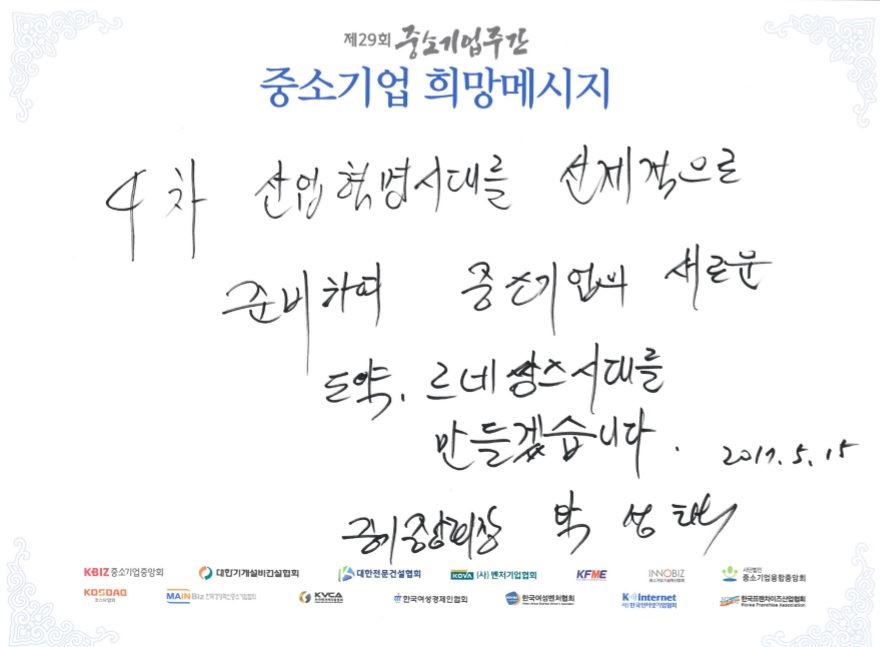 제29회 중소기업주간
중소기업 희망메시지
4차 산업혁명시대를 선제적으로
준비하며 중소기업의 새로운
도약, 르네쌍스시대를
만들겠습니다.
2017. 5. 15
중기중앙회장 박성택
KBIZ 중소기업중앙회 대한기계설비건설협회 대한전문건설협회 KOVA (사)벤처기업협회 KFME INNOBIZ 사단법인 중소기업융합중앙회
KOSDAQ 코스닥협회 MAINBiz KVCA 한국여성경제인협회 한국여성벤처협회 K internet 한국프랜차이즈산업협회 Korea Franchise Association